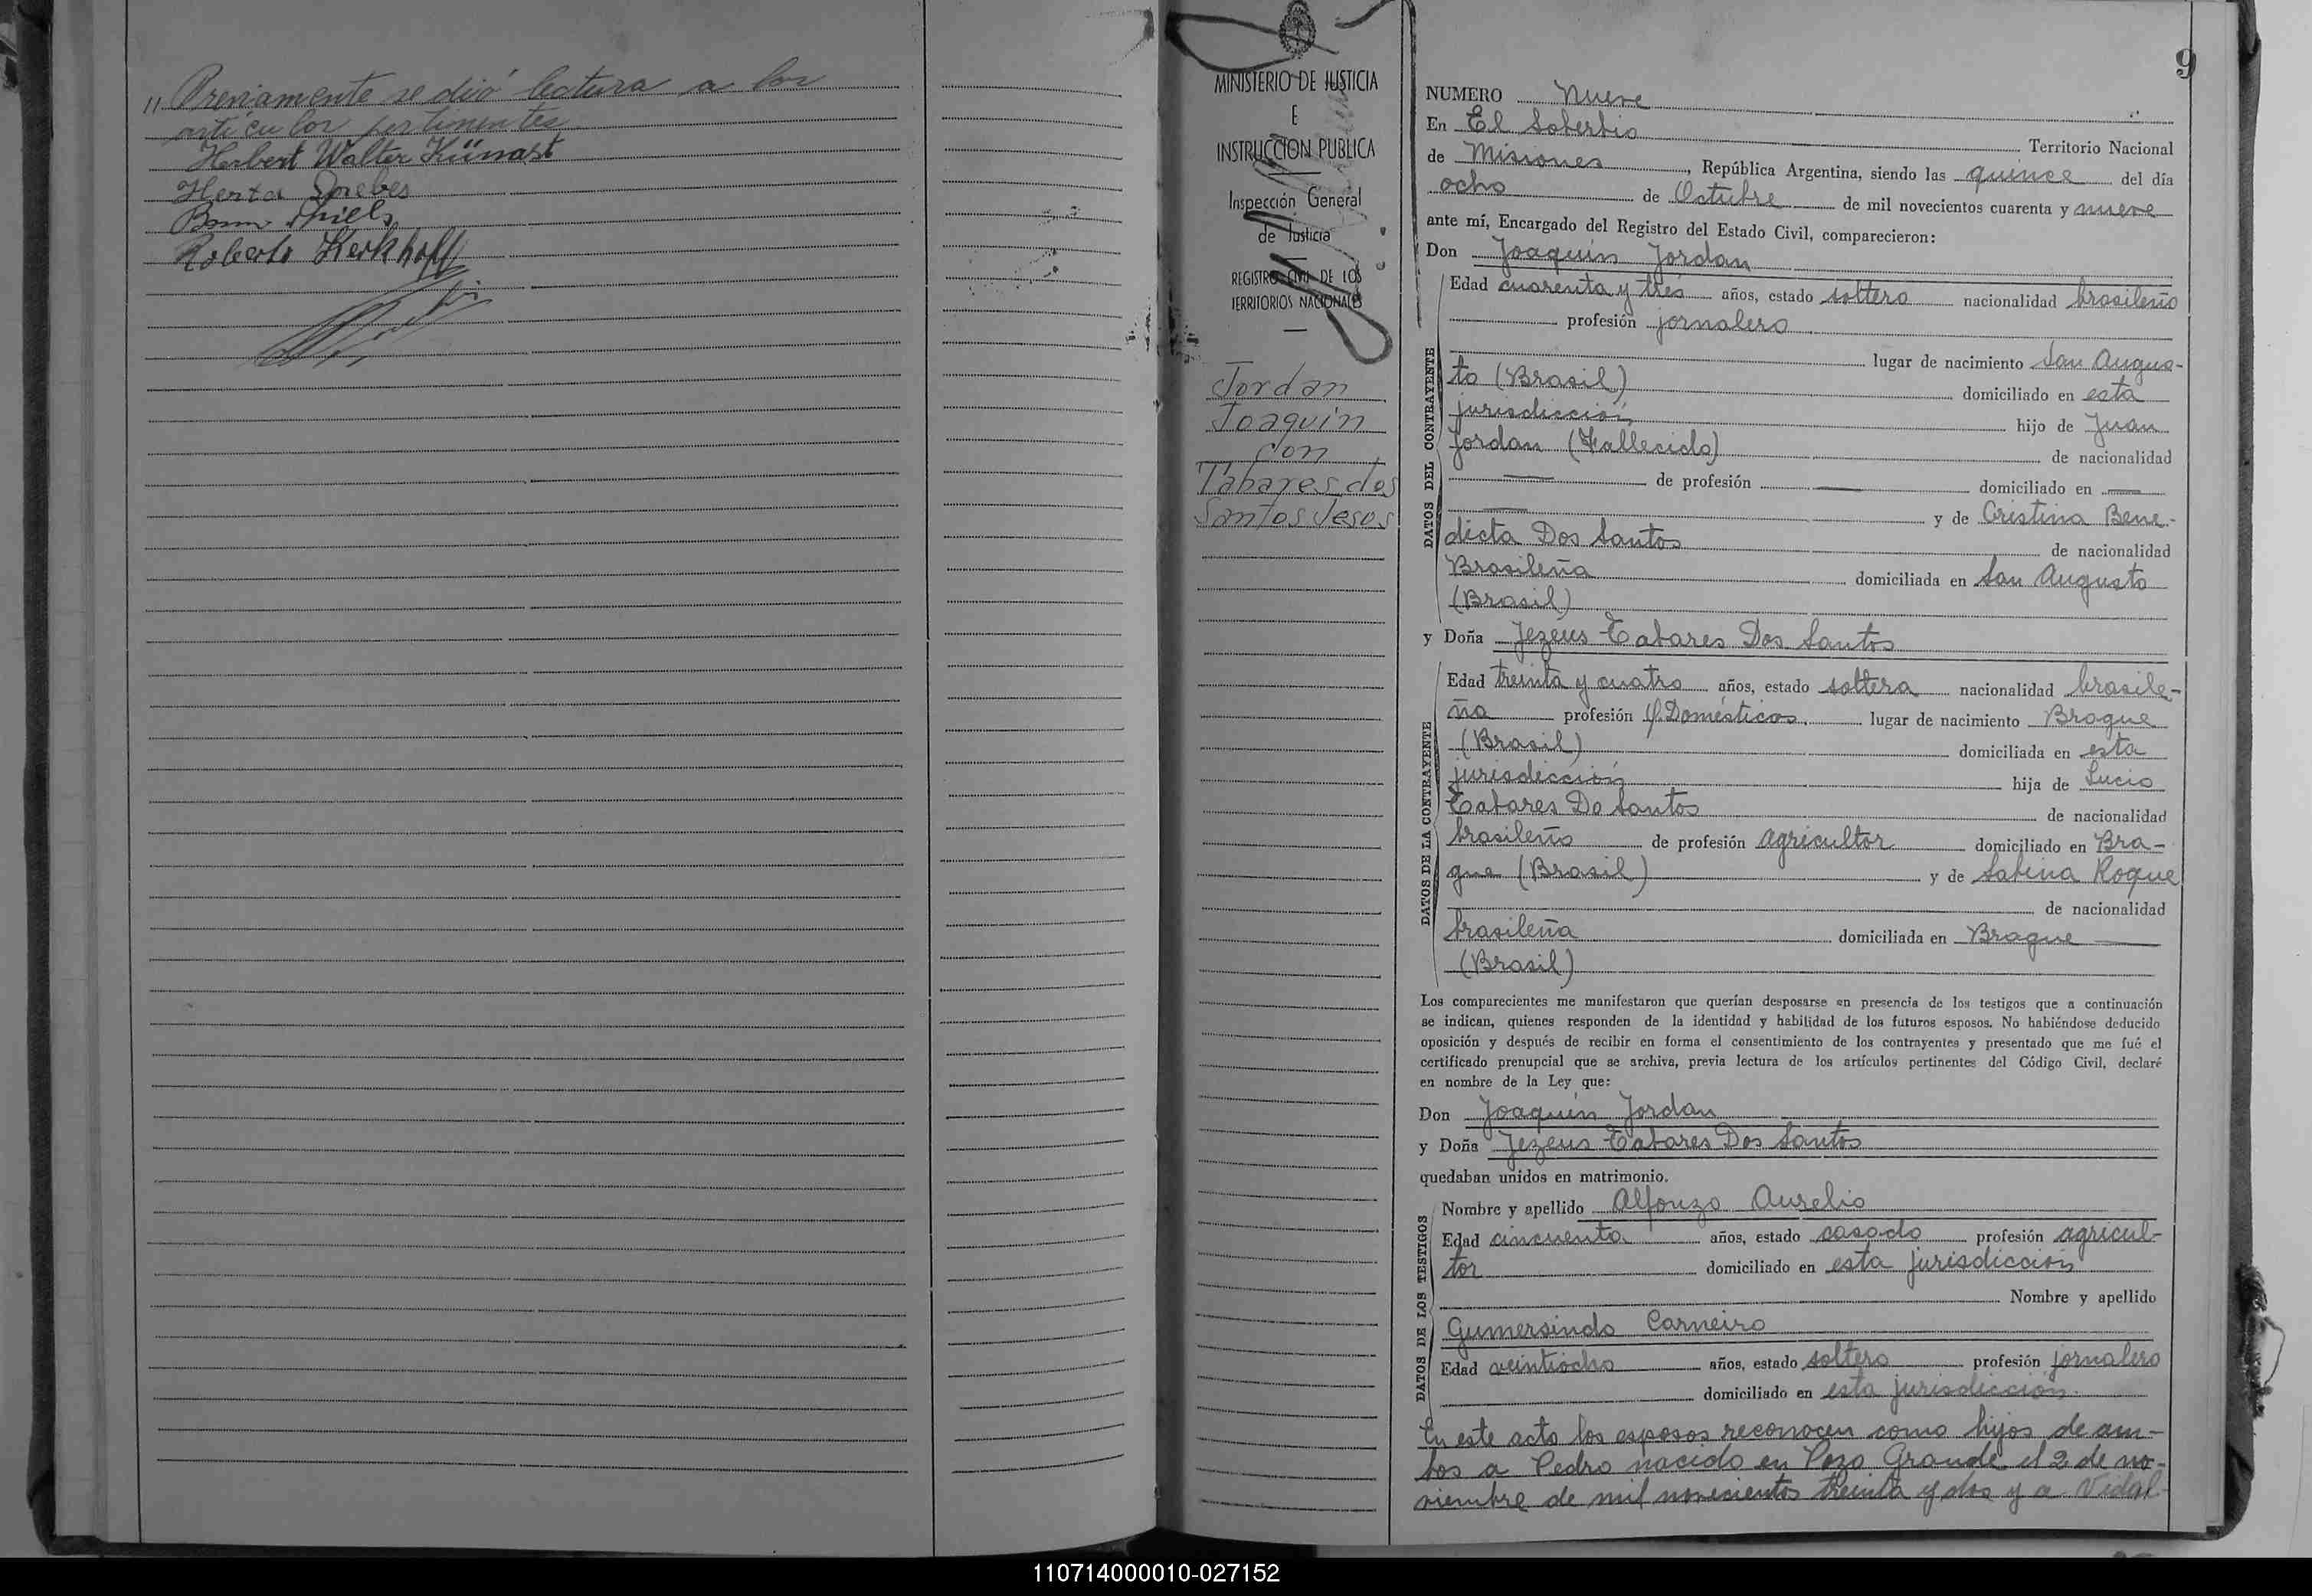 " Previamente se dió lectura a los
artículos pertinentes
Herbert Walter Künast
Herta
Roberto Kerkhoff
MINISTERIO DE JUSTICIA
E
INSTRUCCION PUBLICA
Inspección General
de Justicia
REGISTRO CIVIL DE LOS
TERRITORIOS NACIONALES
Jordan
Joaquin
con
Tabares dos
Santos Jesus
9
NUMERO nueve
En El Soberbio Territorio Nacional
de Misiones, República Argentina, siendo las quince del día
ocho de Octubre de mil novecientos cuarenta y nueve
ante mí, Encargado del Registro del Estado Civil, comparecieron:
Don Joaquín Jordan
DATOS DEL CONTRAYENTE
Edad cuarenta y tres años, estado soltero nacionalidad brasileño
profesión jornalero
lugar de nacimiento San Augus-
to (Brasil) domiciliado en esta
jurisdicción hijo de Juan
Jordan (Fallecido) de nacionalidad
de profesión domiciliado en
y de Cristina Bene-
dicta Dos Santos de nacionalidad
Brasileña domiciliada en San Augusto
(Brasil)
y Doña Jezeús Tabares Dos Santos
DATOS DE LA CONTRAYENTE
Edad treinta y cuatro años, estado soltera nacionalidad brasile-
ña profesión Q. Domésticos, lugar de nacimiento Brague
(Brasil) domiciliada en esta
jurisdicción hija de Lucio
Tabares Do Santos de nacionalidad
brasileño de profesión agricultor domiciliado en Bra-
gue (Brasil) y de Sabina Roque
de nacionalidad
brasileña domiciliada en Brague
(Brasil)
Los comparecientes me manifestaron que querían desposarse en presencia de los testigos que a continuación
se indican, quienes responden de la identidad y habilidad de los futuros esposos. No habiéndose deducido
oposición y después de recibir en forma el consentimiento de los contrayentes y presentado que me fué el
certificado prenupcial que se archiva, previa lectura de los artículos pertinentes del Código Civil, declaré
en nombre de la Ley que:
Don Joaquín Jordan
y Doña Jezeus Tabares Dos Santos
quedaban unidos en matrimonio.
DATOS DE LOS TESTIGOS
Nombre y apellido Alfonzo Aurelio
Edad cincuenta años, estado casado profesión agricul-
tor domiciliado en esta jurisdicción
Nombre y apellido
Gumersindo Carneiro
Edad veintiocho años, estado soltero profesión jornalero
domiciliado en esta jurisdicción.
En este acto los esposos reconocen como hijos de am-
bos a Pedro nacido en Pozo Grande el 2 de no-
viembre de mil novecientos treinta y dos y a Vidal
110714000010-027152